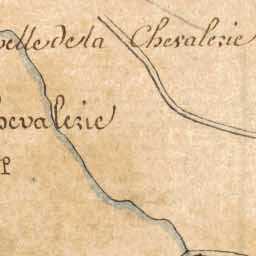 elle de la Chevalerie
hevalerie